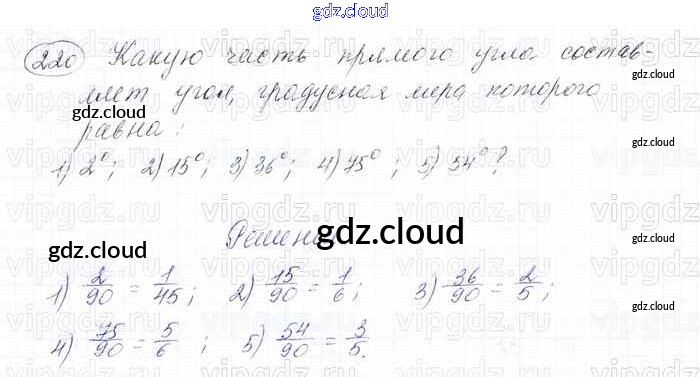 gdz.cloud
220 Какую часть прямого угла состав-
ляет угол, градусная мера которого
равна:
1) 2°; 2) 15°; 3) 36°; 4) 75°; 5) 54°?
gdz.cloud
gdz.cloud
gdz.cloud
gdz.cloud
gdz.cloud
1) 2/90 = 1/45; 2) 15/90 = 1/6; 3) 36/90 = 2/5;
4) 75/90 = 5/6; 5) 54/90 = 3/5.
gdz.cloud
gdz.cloud